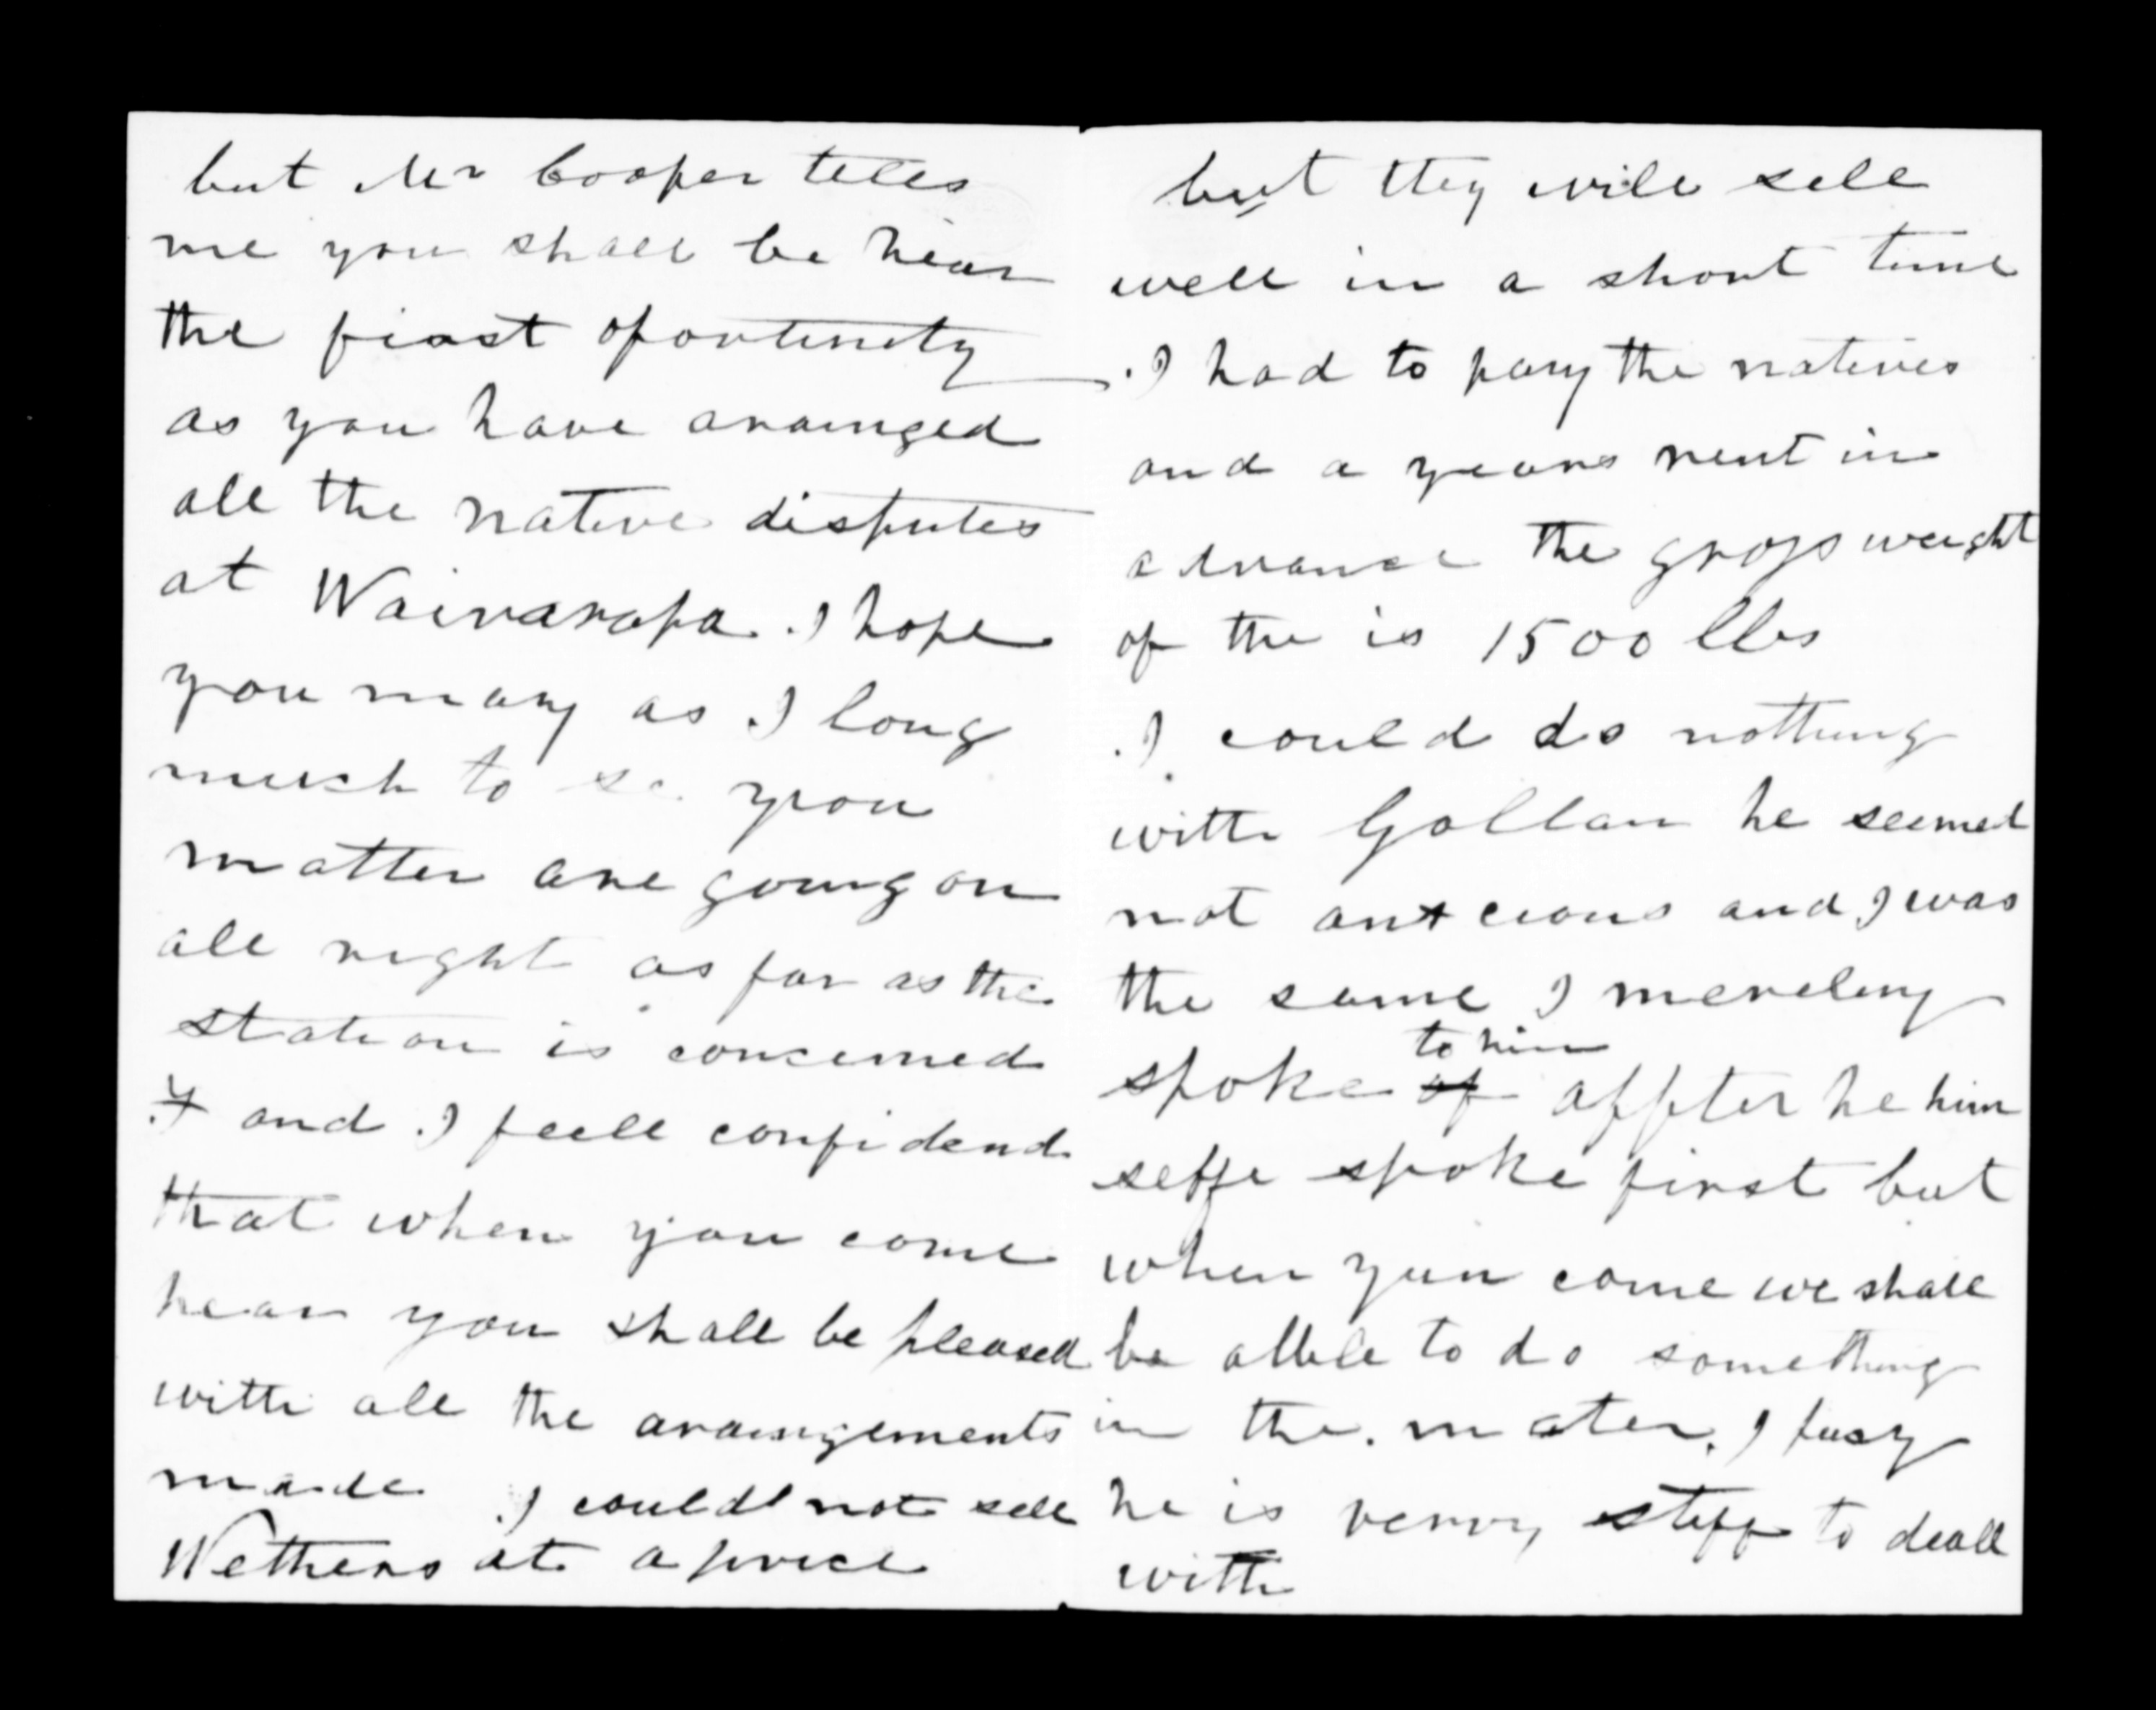 but Mr Cooper tells
me you shall be hear
the first oportinity
as you have arainged
all the native disputes
at Wairarapa. I hope
you may as I long
much to se you
matter are going on
all right as far as the
station is concerned
I and I feell confidend
that when you come
hear you shall be pleased
with all the araingements
made I could not sell
Wethers at a price
but they will sell
well in a short time
I had to pay the natives
and a years rent in
advance the gross weight
of the is 1500 lbs
I could do nothing
with Gollan he seemed
not antcious and I was
the same I mereley
to him
spoke of affter he him
selfe spoke first but
when you come we shall
be abble to do something
in the mater. I fusy
he is verry steff to deall
with